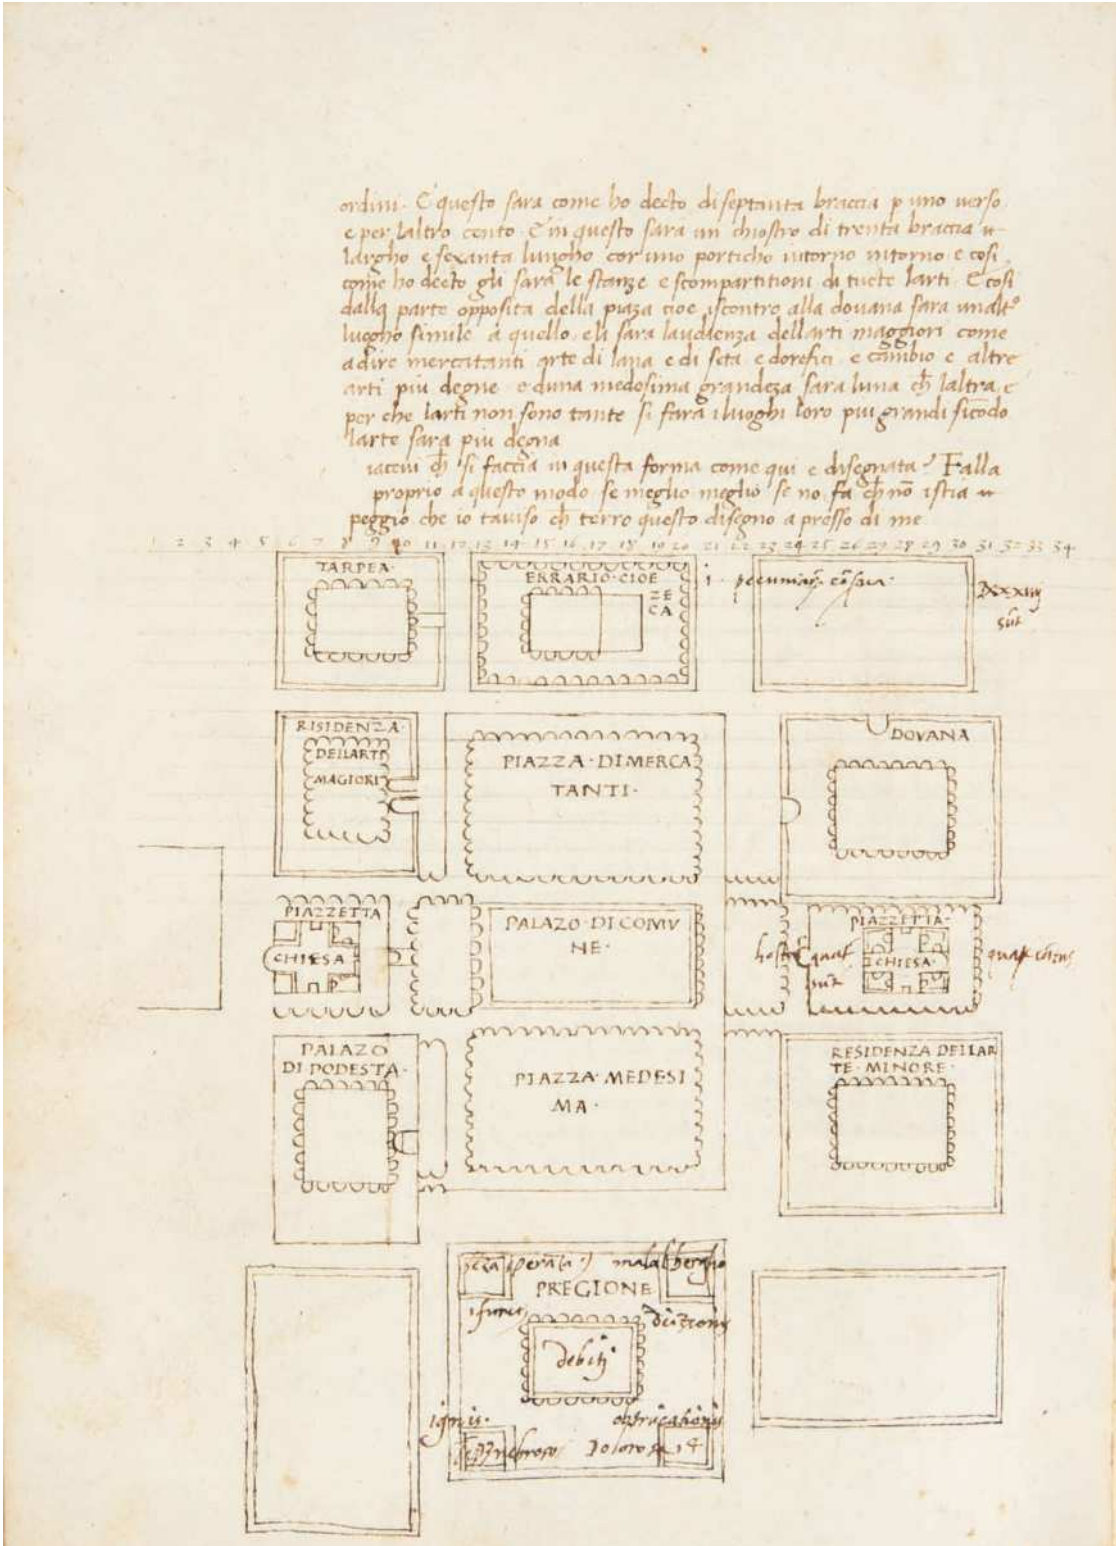 ordini · E questo sara come ho decto di septanta braccia p uno uerso
e per laltro cento · E in questo sara un chiostro di trenta braccia
largho e sexanta lungho con uno porticho intorno intorno e cosi
come ho decto gli sara le stanze e scompartitioni di tucte larti · E cosi
dalla parte opposita della piaza cioe iscontro alla douana sara unalt°
luogho simile a quello e li sara laudienza dellarti maggiori come
adire mercatanti arte di lana e di seta e dorefici e cambio e altre
arti piu degne e duna medesima grandeza sara luna ch laltra e
per che larti non sono tante si fara i luoghi loro piu grandi secōdo
larte sara piu degna
iaceui ch si faccia in questa forma come qui e disegnata? Falla
proprio a questo modo se meglio meglio se no fa ch nō istia
peggio che io tauiso ch terro questo disegno apresso di me
1 2 3 4 5 6 7 8 9 10 11 12 13 14 15 16 17 18 19 20 21 22 23 24 25 26 27 28 29 30 31 32 33 34
TARPEA ·
ERRARIO · CIOE
ZE
CA
RISIDENZA ·
DELLARTI
MAGIORI
PIAZZA · DIMERCA
TANTI ·
DOVANA
PIAZZETTA
CHIESA
PALAZO · DI COMV
NE ·
PIAZZETTA ·
CHIESA ·
PALAZO
DI PODESTA ·
PIAZZA · MEDESI
MA ·
RESIDENZA DELLAR
TE · MINORE ·
PREGIONE
debitj
ignis ·